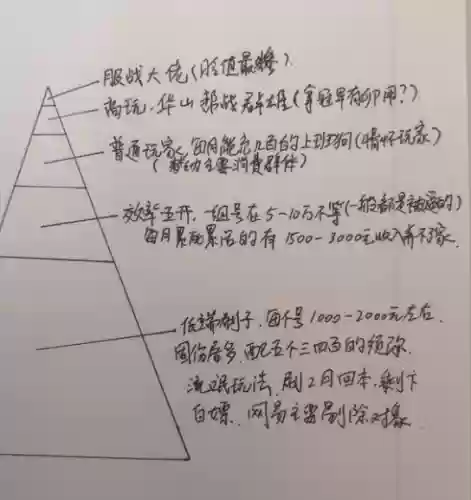 服战大佬(颜值最矮)
高玩、华山帮战群雄(拿冠军有卵用?)
普通玩家 每月能充几百的上到狗(情怀玩家)
(梦幻主要消费群体)
效率五开,一组号在5-10万不等(一般都是被逼的)
每月累死累活的有1500-3000元收入养不家
低端刷子,每个号1000-2000元左右
固伤居多,配五个三四百的须弥
流氓玩法,刷2月回本,剩下
白嫖、网易主要剔除对象